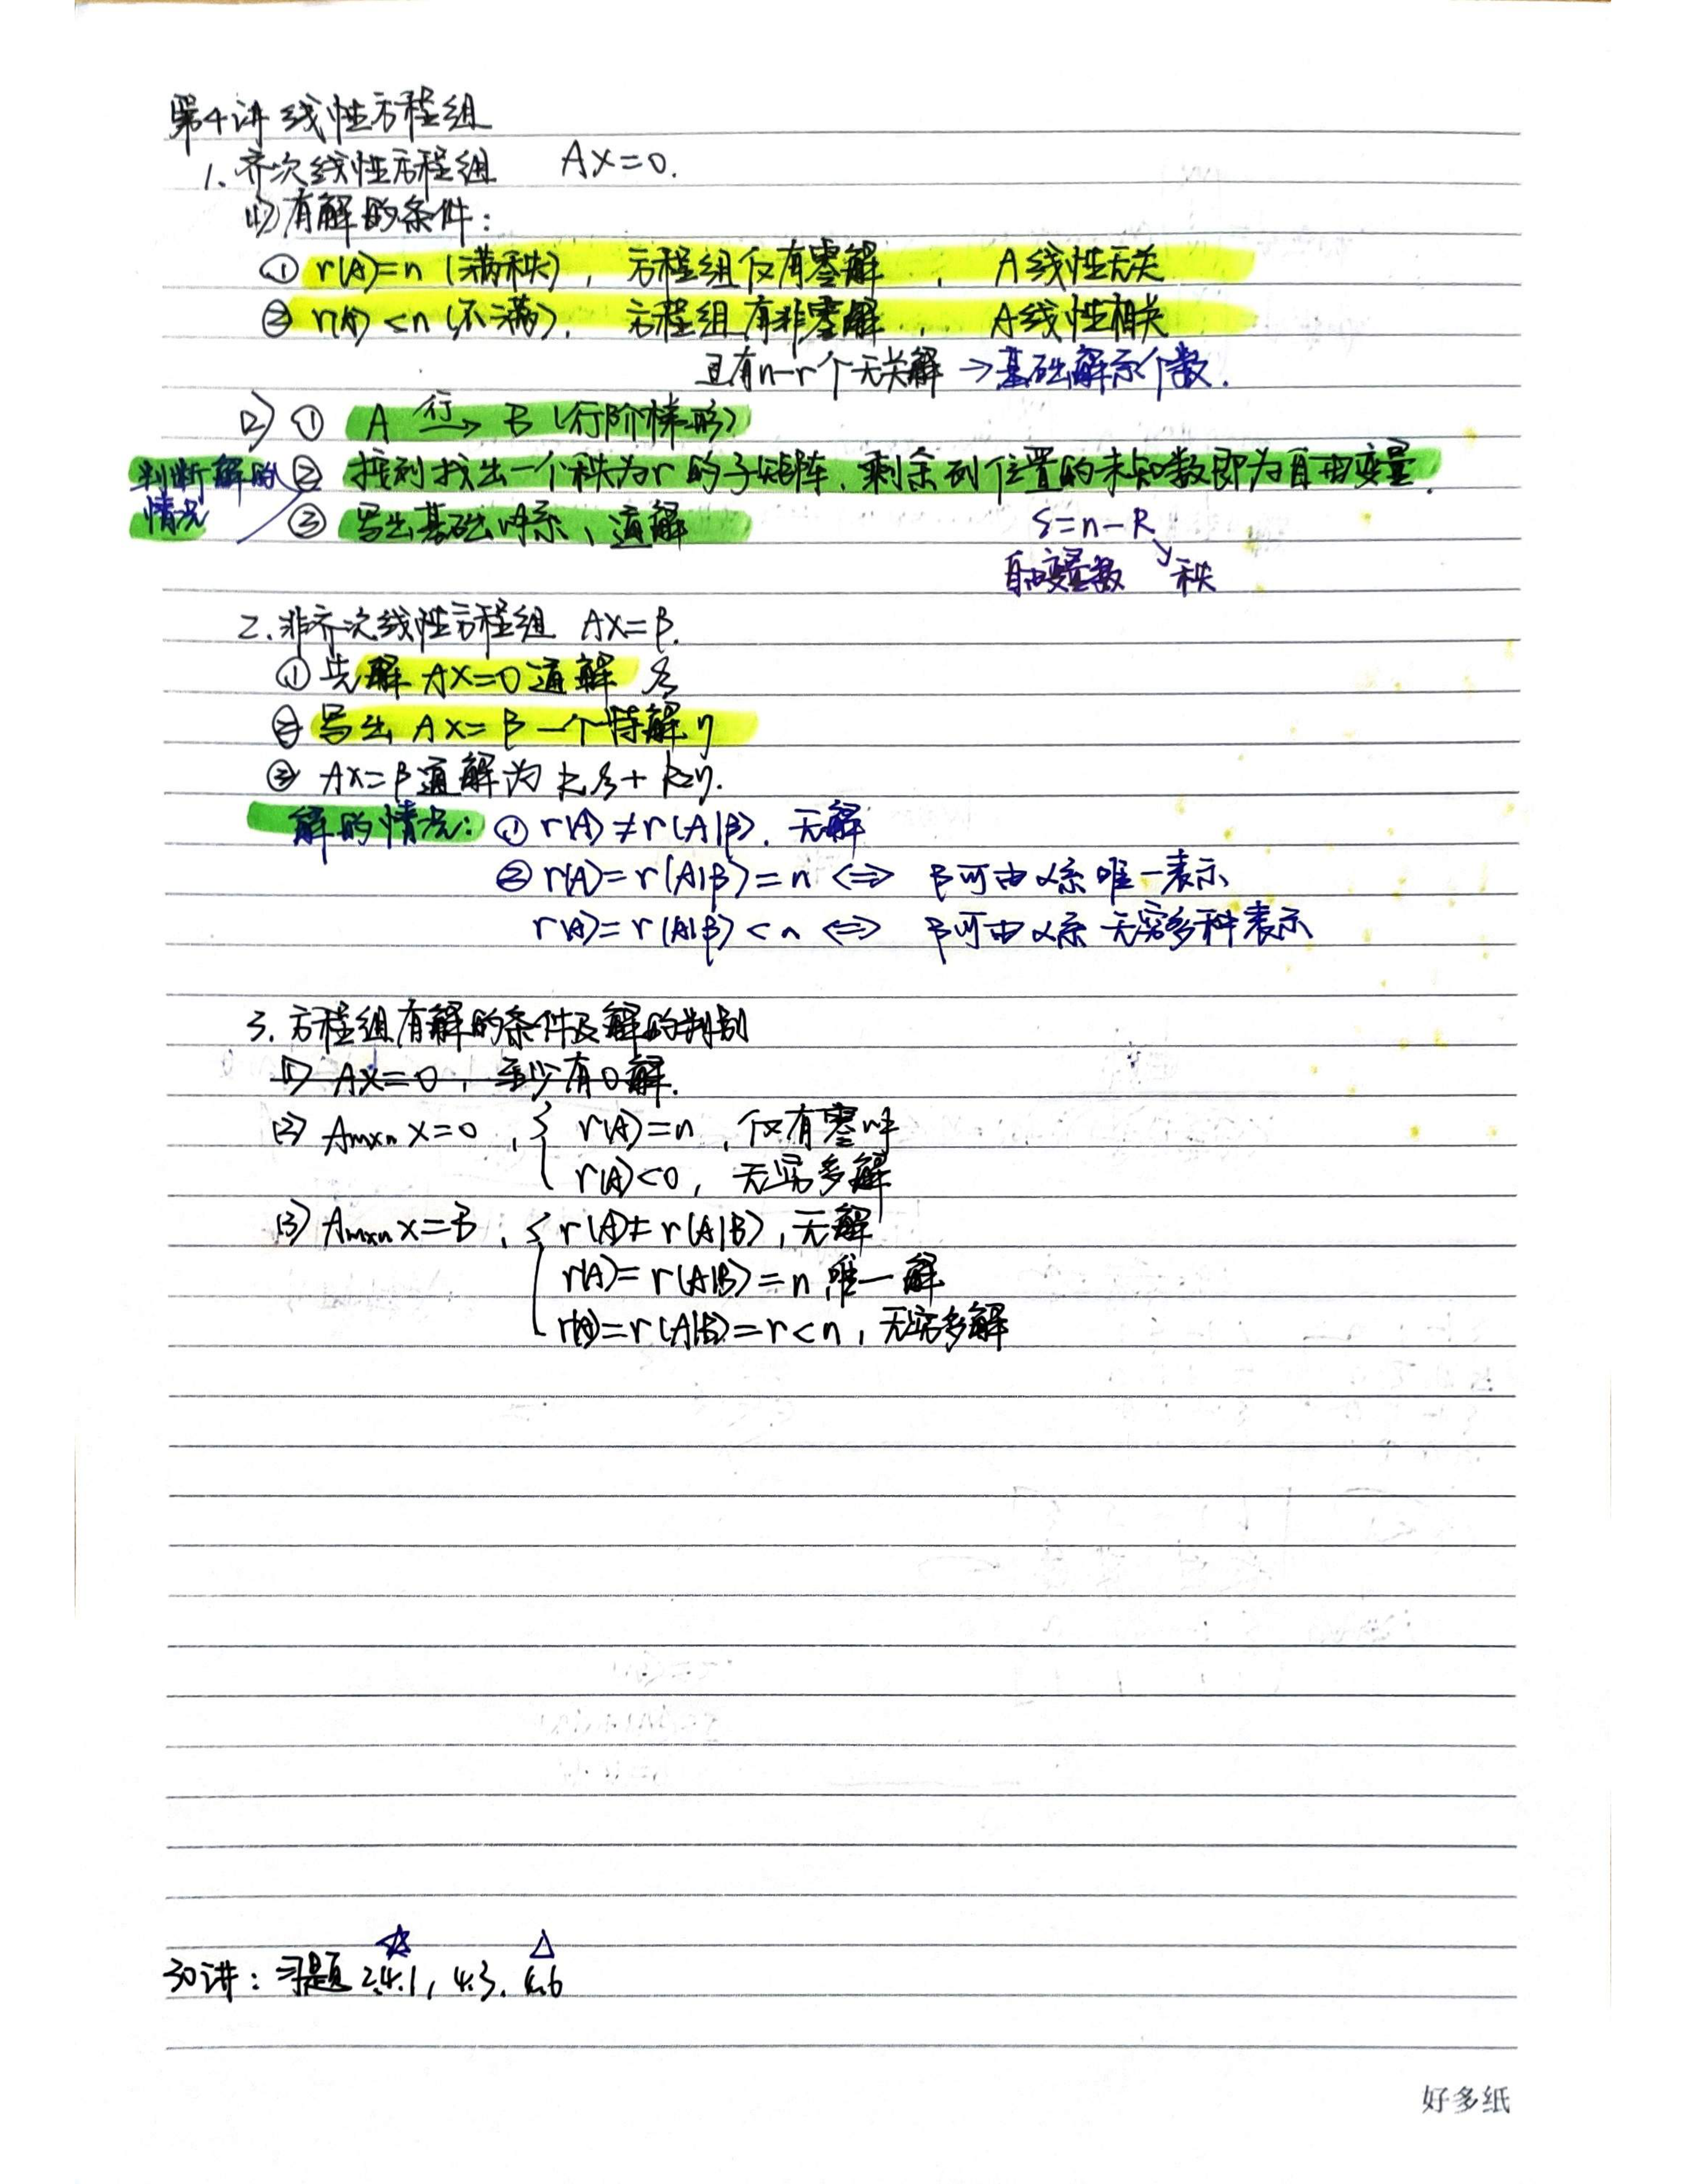 第4讲 线性方程组
1. 齐次线性方程组 AX=0.
(1) 有解的条件:
① r(A)=n (满秩), 方程组仅有零解, A线性无关
② r(A)<n (不满), 方程组有非零解, A线性相关
且有n-r个无关解 →基础解系个数.
(2) ① A 行→ B (行阶梯形)
判断解的情况
② 按列找出一个秩为r的子矩阵, 剩余列位置的未知数即为自由变量.
③ 写出基础解系、通解
S=n-R
自由变量数 秩
2. 非齐次线性方程组 AX=β.
① 先解 AX=0 通解 ξ
② 写出 AX=β 一个特解 η
③ AX=β 通解为 k₁ξ+k₂η.
解的情况: ① r(A)≠r(A|β). 无解
② r(A)=r(A|β)=n ⟺ β可由α系唯一表示
r(A)=r(A|β)<n ⟺ β可由α系无穷多种表示
3. 方程组有解的条件及解的判别
(1) AX=0, 至少有0解.
(2) Amxn x=0, { r(A)=n, 仅有零解
r(A)<0, 无穷多解
(3) Amxn x=B, { r(A)≠r(A|B), 无解
r(A)=r(A|B)=n, 唯一解
r(A)=r(A|B)=r<n, 无穷多解
☆ △
30讲: 习题 2.4.1, 4.3. 4.6
好多纸